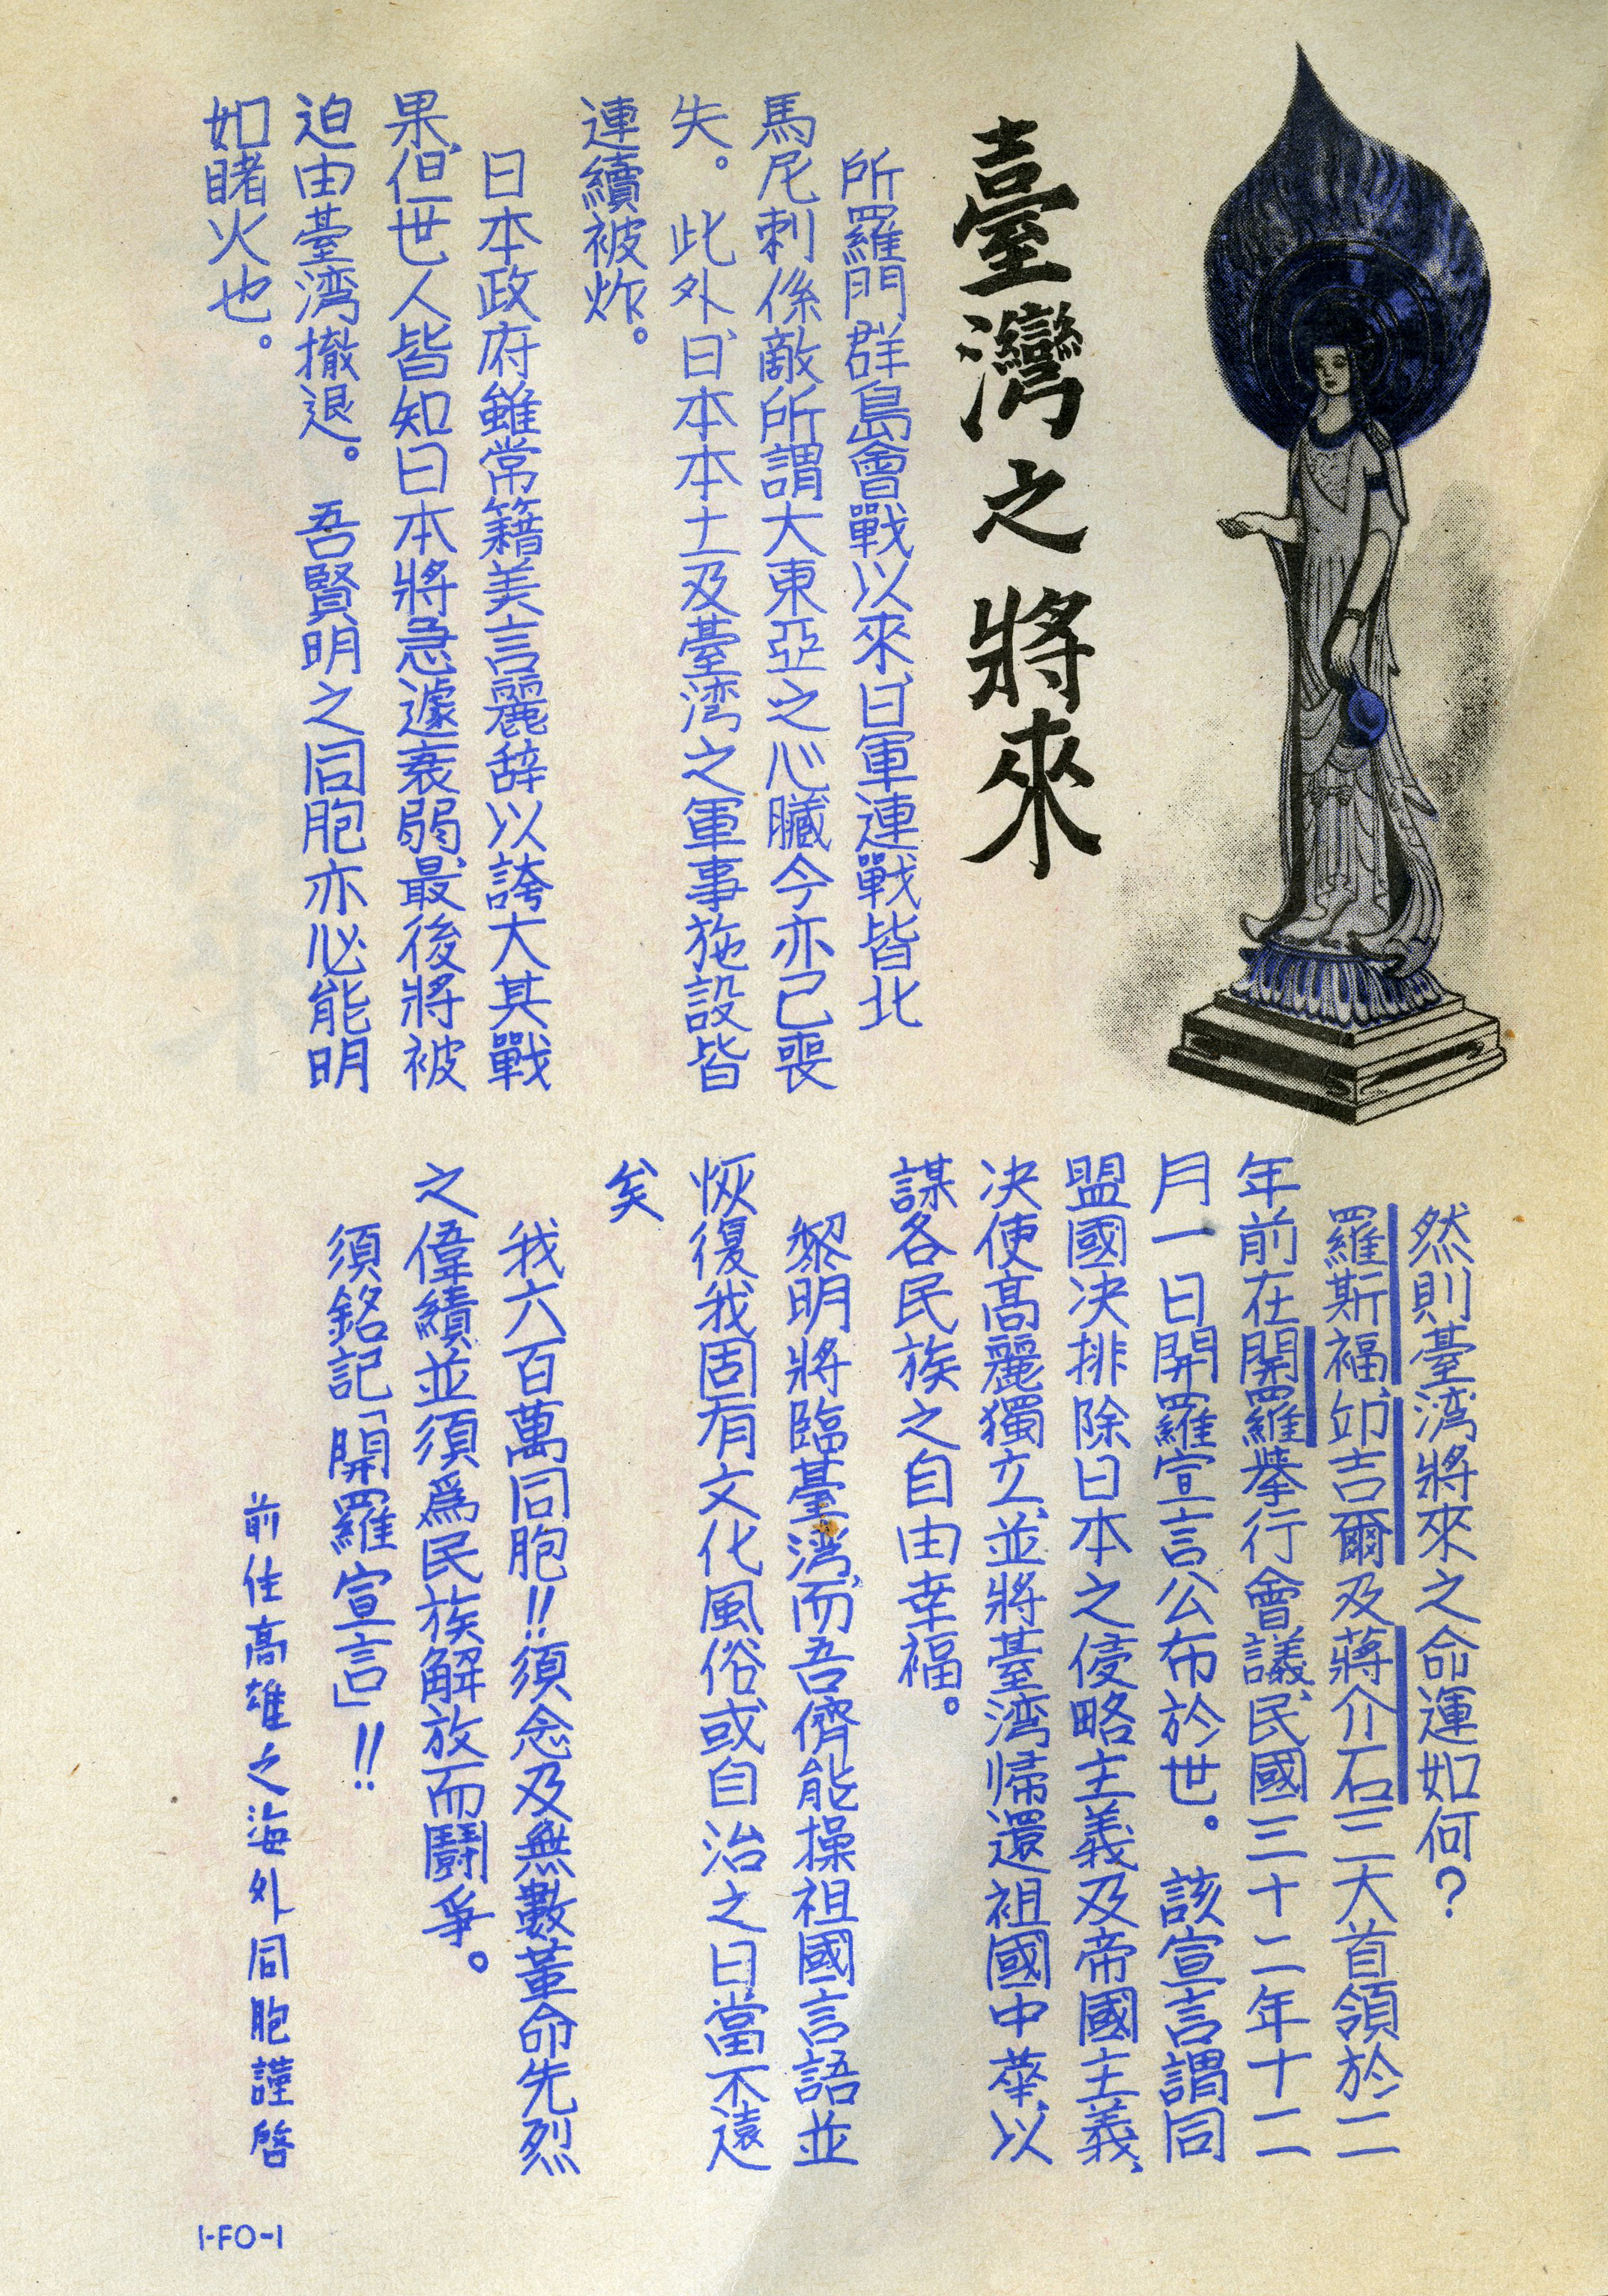 臺灣之將來
所羅門群島會戰以來、日軍連戰皆北
馬尼刺係敵所謂大東亞之心臟今亦已喪
失。此外、日本本土及臺湾之軍事施設皆
連續被炸。
日本政府雖常籍美言麗辞以誇大其戰
果、但世人皆知日本將急遽衰弱、最後將被
迫由臺湾撤退。吾賢明之同胞亦必能明
如睹火也。
然則臺湾將來之命運如何?
羅斯福、邱吉爾及蔣介石三大首領於二
年前在開羅挙行會議、民國三十二年十二
月一日開羅宣言公布於世。該宣言謂同
盟國决排除日本之侵略主義及帝國主義、
决使高麗獨立、並將臺湾帰還祖國中華、以
謀各民族之自由幸福。
黎明將臨臺湾、而吾儕能操祖國言語並
恢復我固有文化風俗或自治之日當不遠
矣
我六百萬同胞!!須念及無數革命先烈
之偉績並須爲民族解放而鬪爭。
須銘記「開羅宣言」!!
前住高雄之海外同胞謹啓
1-FO-1